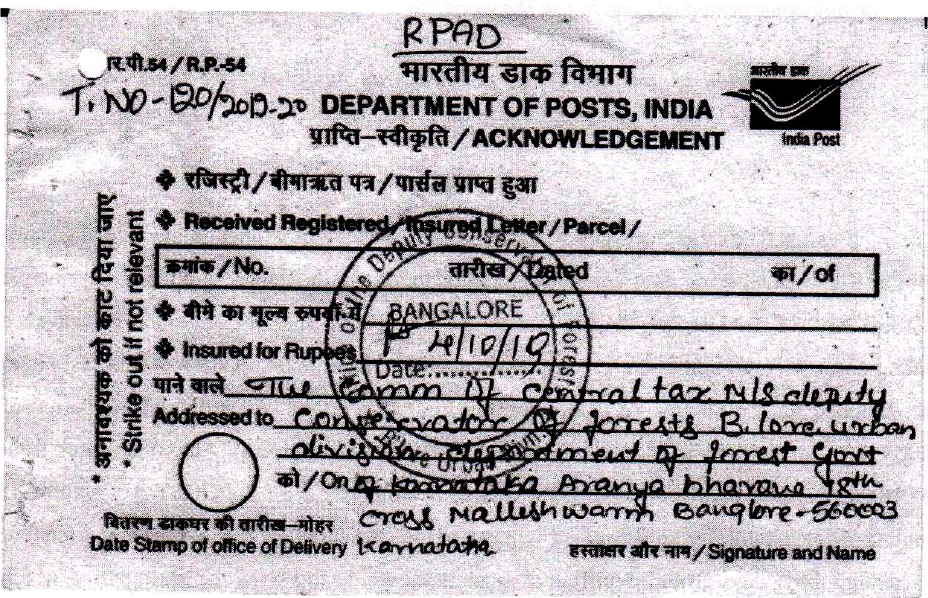 RPAD
आर.पी.54 / R.P.-54
भारतीय डाक विभाग
भारतीय डाक
T. NO-120/2019-20 DEPARTMENT OF POSTS, INDIA
प्राप्ति–स्वीकृति / ACKNOWLEDGEMENT
India Post
* अनावश्यक को काट दिया जाए
* Strike out if not relevant
❖ रजिस्ट्री / बीमाऋत पत्र / पार्सल प्राप्त हुआ
❖ Received Registered / Insured Letter / Parcel /
क्रमांक / No. तारीख / Dated का / of
❖ बीमे का मूल्य रुपयों में
❖ Insured for Rupees
Deputy Conservator of Forest
BANGALORE
4/10/19
Date:
Urban
पाने वाले The Comm of Central tax M/S deputy
Addressed to Conservators of forests B.lore urban
division department of forest Govt
को / On of Karnataka Aranya bhavana 18th
cross Malleshwarm Banglore-560003
वितरण डाकघर की तारीख–मोहर
Date Stamp of office of Delivery Karnataka
हस्ताक्षर और नाम / Signature and Name